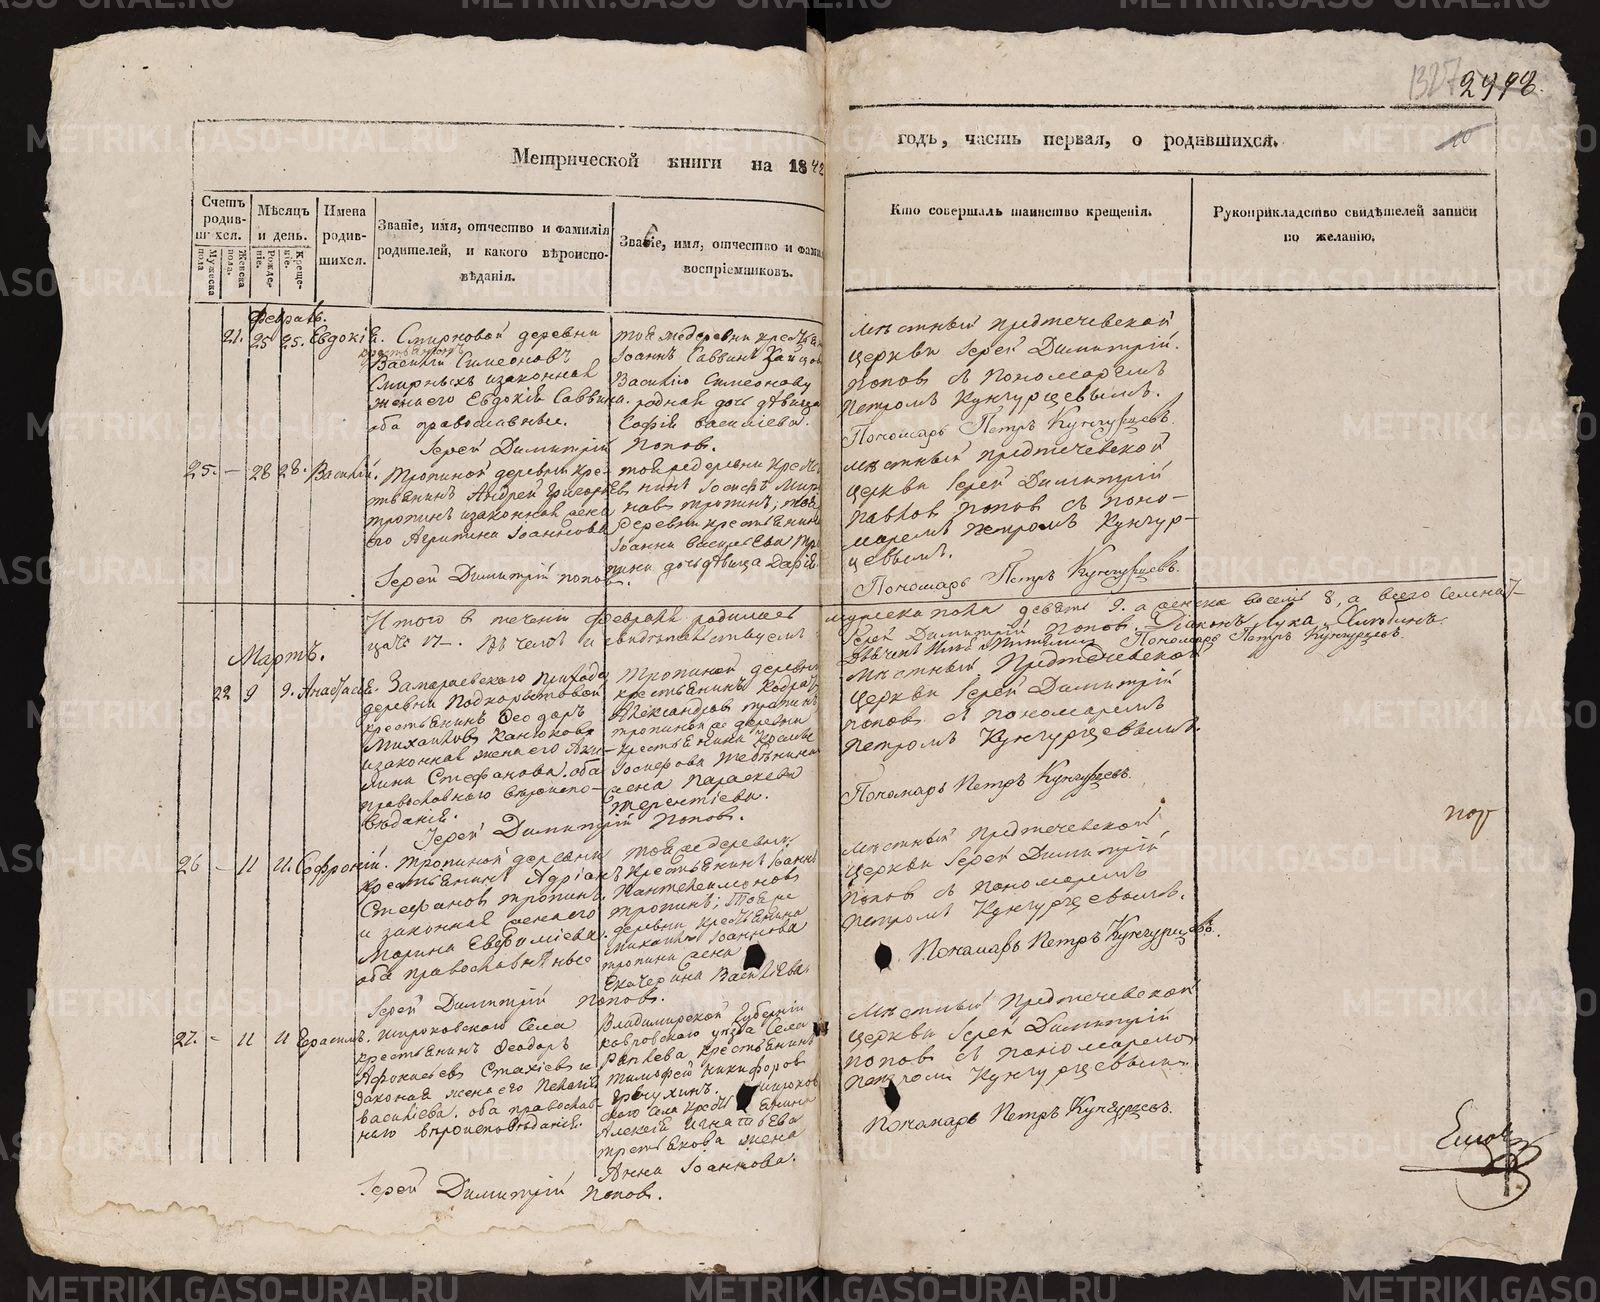 METRIKI.GASO-URAL.RU
1327 2998.
10
Метрической книги на 1842
годъ, часть первая, о родившихся.
Счетъ родившихся.
Мужеска пола
Женска пола.
Мѣсяцъ и день.
Рожденіе.
Крещеніе.
Имена родившихся.
Званіе, имя, отчество и фамилія
родителей, и какого вѣроиспо-
вѣданія.
Званіе, имя, отчество и фами
воспріемниковъ.
Кто совершалъ таинство крещенія.
Рукоприкладство свидѣтелей записи
по желанію.
Февраль.
21. 25 25. Евдокія.
Смирновой деревни
крестьянинъ
Василій Симеоновъ
Смирныхъ изаконная
жена его Евдокія Саввина.
оба православные.
тоя же деревни кресть
Іоаннъ Саввинъ Зайцов
Василію Симеонову
родная дочь дѣвица
Софія Василіева.
Іерей Димитрій Попов.
мѣстный предтечевской
церкви Іерей Димитрій.
Попов съ пономаремъ
Петромъ Кунгурцевымъ.
Пономарь Петръ Кунгурцевъ.
25. — 28 28. Василій.
Тропиной деревни кре-
стьянинъ Андрей Григорьев
тропинъ изаконная жена
его Агрипина Іоаннова
тоя же деревни кресть
нинъ Іосифъ
нов тропинъ; тоя
деревни крестьянин
Іоанна Василіева тро
пина дочь дѣвица Дарія
Іерей Димитрій Попов.
мѣстный предтечевской
церкви Іерей Димитрій
Павлов Попов съ поно-
маремъ Петромъ Кунгур-
цевымъ.
Пономарь Петръ Кунгурцевъ.
Итого в теченіи февраля родилось мужеска пола девять 9. а женска восемь 8, а всего семнат-
цать 17. Въ чемъ и свидѣтельствуемъ Іерей Димитрій Попов. Діаконъ Лука
Пономарь Петръ Кунгурцевъ.
Мартъ.
22 9 9. Анастасія.
Замараевского прихода
деревни Подкорытовой
крестьянинъ Ѳеодоръ
Михаиловъ Канюков
изаконная жена его Аку-
лина Стефанова. оба
православного вѣроиспо-
вѣданія.
Тропиной деревни
крестьянинъ Кодрат
Александров тропинъ
тропиной же деревни
крестьянина Козмы
Іосифова
жена Параскева
Терентіева.
Іерей Димитрій Попов.
мѣстный Предтечевской
церкви Іерей Димитрій
попов съ пономаремъ
Петромъ Кунгурцевымъ.
Пономарь Петръ Кунгурцевъ.
26 — 11 11. Софроній.
Тропиной деревни
крестьянинъ Адріанъ
Стефанов тропинъ.
и законная жена его
Марина Евфиміева.
оба православныые
Той же деревни,
крестьянинъ Іоаннъ
Пантелеимоновъ
тропинъ; Тоя же
деревни крестьянина
Михаила Іоаннова
тропина жена
Екатерина Василіева.
Іерей Димитрій Попов.
мѣстный Предтечевской
церкви Іерей Димитрій
Попов съ пономаремъ
Петромъ Кунгурцевымъ.
Пономарь Петръ Кунгурцевъ.
27. — 11 11 Герасимъ.
Широковского Села
крестьянинъ Ѳеодоръ
Афонасьевъ Стахіевъ и
законая жена его Пелагія
Василіева. оба православ-
наго вѣроисповѣданія.
Владимирской Губерніи
ковровского уѣзда Села
крестьянинъ
Тимофей Никифоров
Широков
ского села крестьянина
Алексія Игнатьева
третьякова жена
Анна Іоаннова.
Іерей Димитрій Попов.
Мѣстный Предтечевской
церкви Іерей Димитрій
Попов съ пономаремъ
Петромъ Кунгурцевымъ.
Пономарь Петръ Кунгурцевъ.